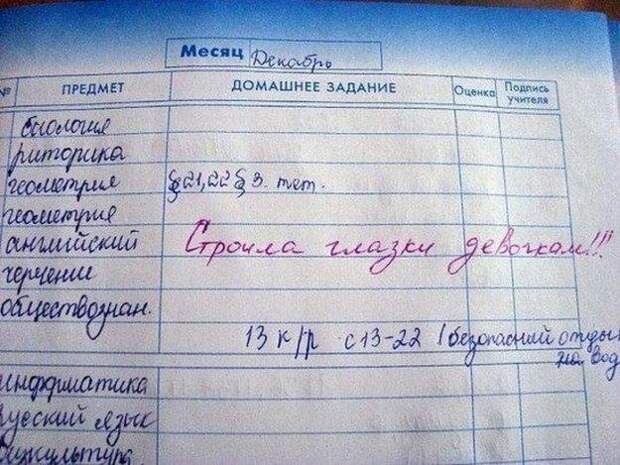 Месяц Декабрь
№ ПРЕДМЕТ ДОМАШНЕЕ ЗАДАНИЕ Оценка Подпись учителя
биология
риторика
геометрия §21,22 § 3. тет.
геометрия
английский Строила глазки девочкам!!!
черчение
обществознан.
13 к/р с 13-22 (безопасный отдых
на вод
информатика
русский язык